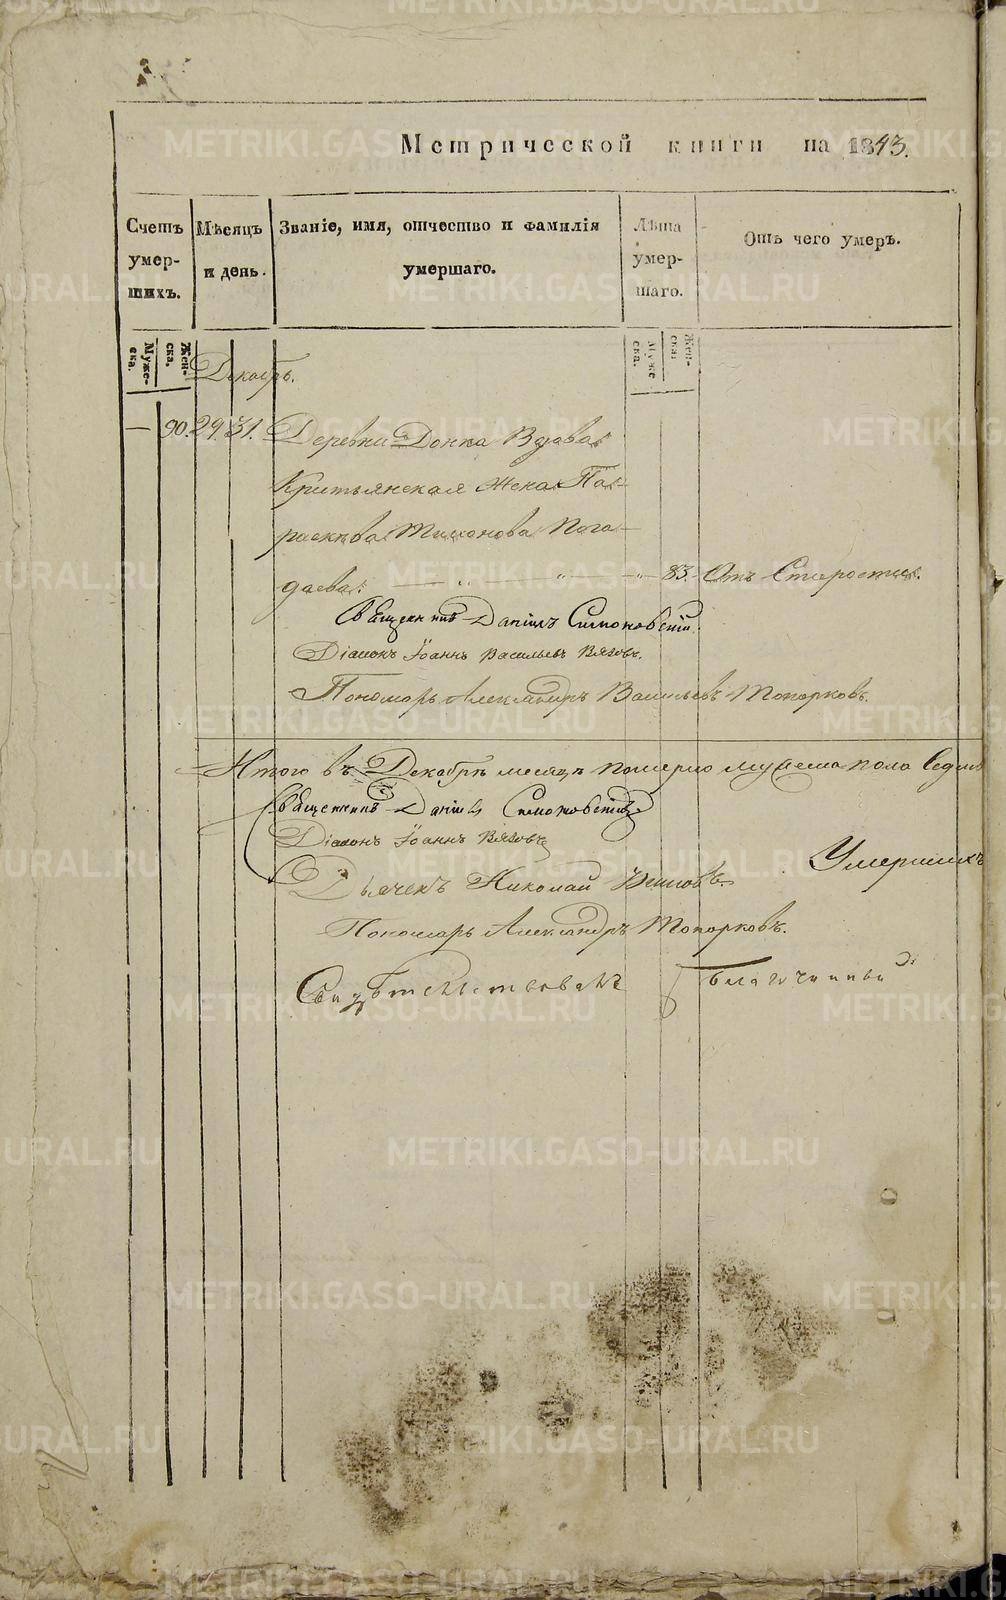 Метрической книги на 1843.
Счетъ умер- шихъ.
Мѣсяцъ и день.
Званіе, имя, отчество и фамилія умершаго.
Лѣта умер- шаго.
Отъ чего умеръ.
Муже- ска.
Жен- ска.
Муже ска.
Жен- ска.
Декабрь.
— 90. 29. 31. Деревни Донка Вдова
Критьянская жена Па-
раскѣва Тихонова Пога-
даева: — „ — „ — „ — 83. Отъ Старости.
Священникъ Даніилъ Симоновскій.
Діаконъ Іоаннъ Васильевъ Вязовъ.
Пономарь Александръ Васильевъ Топорковъ.
Итого въ Декабрѣ месяцѣ померло мужеска пола Седмь
Священникъ Даніилъ Симоновскій
Діаконъ Іоаннъ Вязовъ
Умершихъ
Дьячекъ Николай
Пономарь Александръ Топорковъ.
Свидѣтельствовалъ Благочинный
METRIKI.GASO-URAL.RU